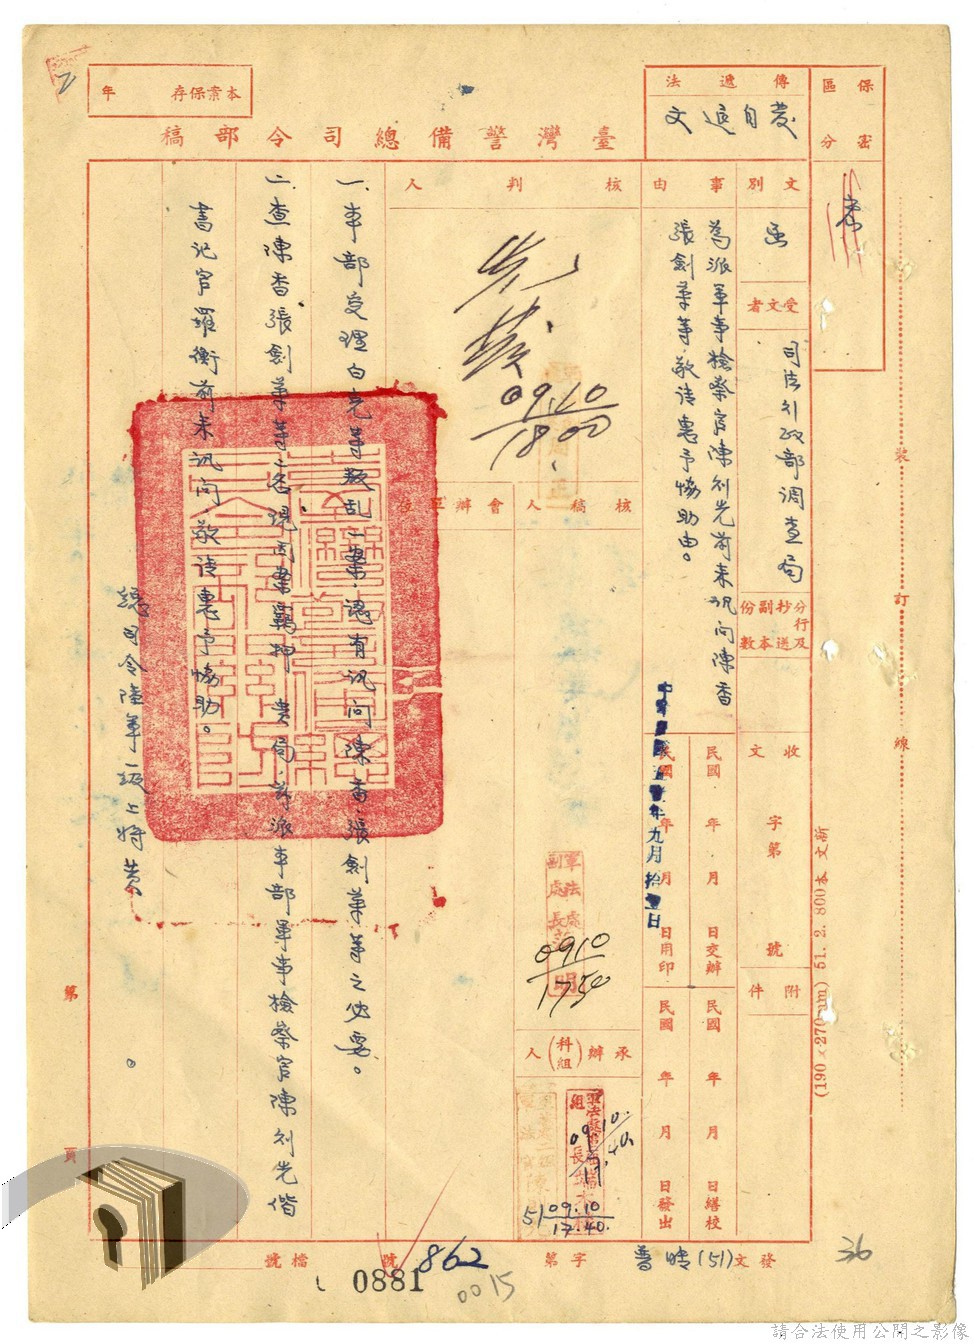 保密
區分
密
傳遞法
發自送文
本案保存 年
臺灣警備總司令部稿
文別
函
受文者
司法行政部調查局
份數 抄送副本 分行及
收文 字第 號
附件
事由
為派軍事檢察官陳 前來訊問陳香
張劍華等,敬請惠予協助由。
民國 年 月 日交辦
民國 年 月 日繕校
中華民國五十 年九月拾 日
民國 年 月 日用印
民國 年 月 日發出
核判人
09.10
18.00
核稿人
會辦單位
軍法處
副處長
明
0910
1750
承辦(科組)人
09.10
17.40
51 09.10
17.40.
一、本部受理白克等叛亂一案,認有訊問陳香、張劍華等之必要。
二、查陳香、張劍華等二名現因案羈押 貴局,茲派本部軍事檢察官陳 先偕
書記官羅衡前來訊問,敬請惠予協助。
總司令陸軍一級上將黃 。
第 頁
裝 訂 線
(190×270mm) 51. 2. 800本 文新
發文(51)普 字第 862 號
檔號
0881
0015
36
請合法使用公開之影像